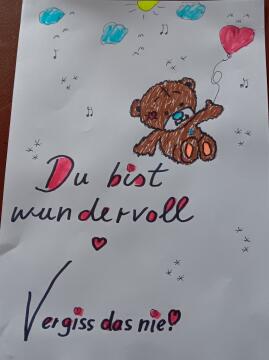 Du bist
wundervoll
Vergiss das nie!